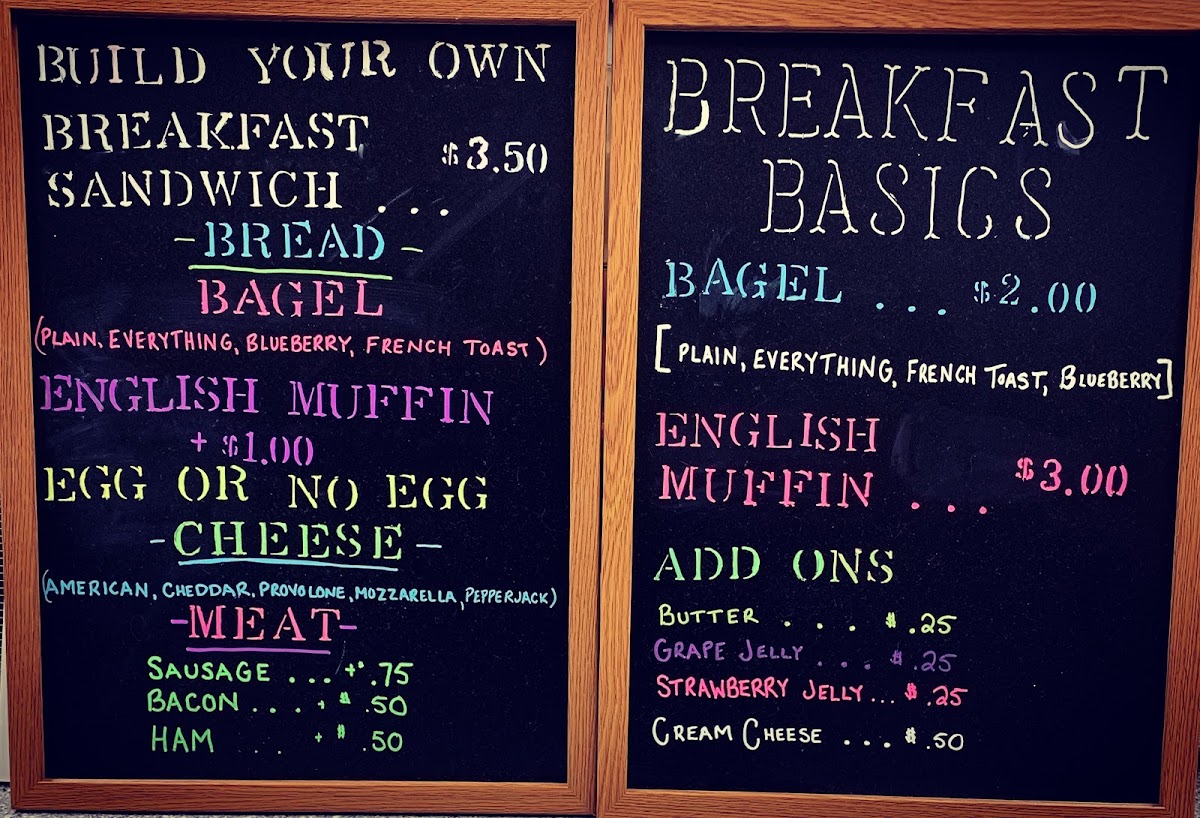 BUILD YOUR OWN
BREAKFAST
SANDWICH ... $3.50
-BREAD-
BAGEL
(PLAIN, EVERYTHING, BLUEBERRY, FRENCH TOAST)
ENGLISH MUFFIN
+ $1.00
EGG OR NO EGG
-CHEESE-
(AMERICAN, CHEDDAR, PROVOLONE, MOZZARELLA, PEPPERJACK)
-MEAT-
SAUSAGE ... +$ .75
BACON ... + $ .50
HAM ... + $ .50
BREAKFAST
BASICS
BAGEL ... $2.00
[PLAIN, EVERYTHING, FRENCH TOAST, BLUEBERRY]
ENGLISH
MUFFIN ... $3.00
ADD ONS
BUTTER ... $ .25
GRAPE JELLY ... $ .25
STRAWBERRY JELLY... $ .25
CREAM CHEESE ... $ .50